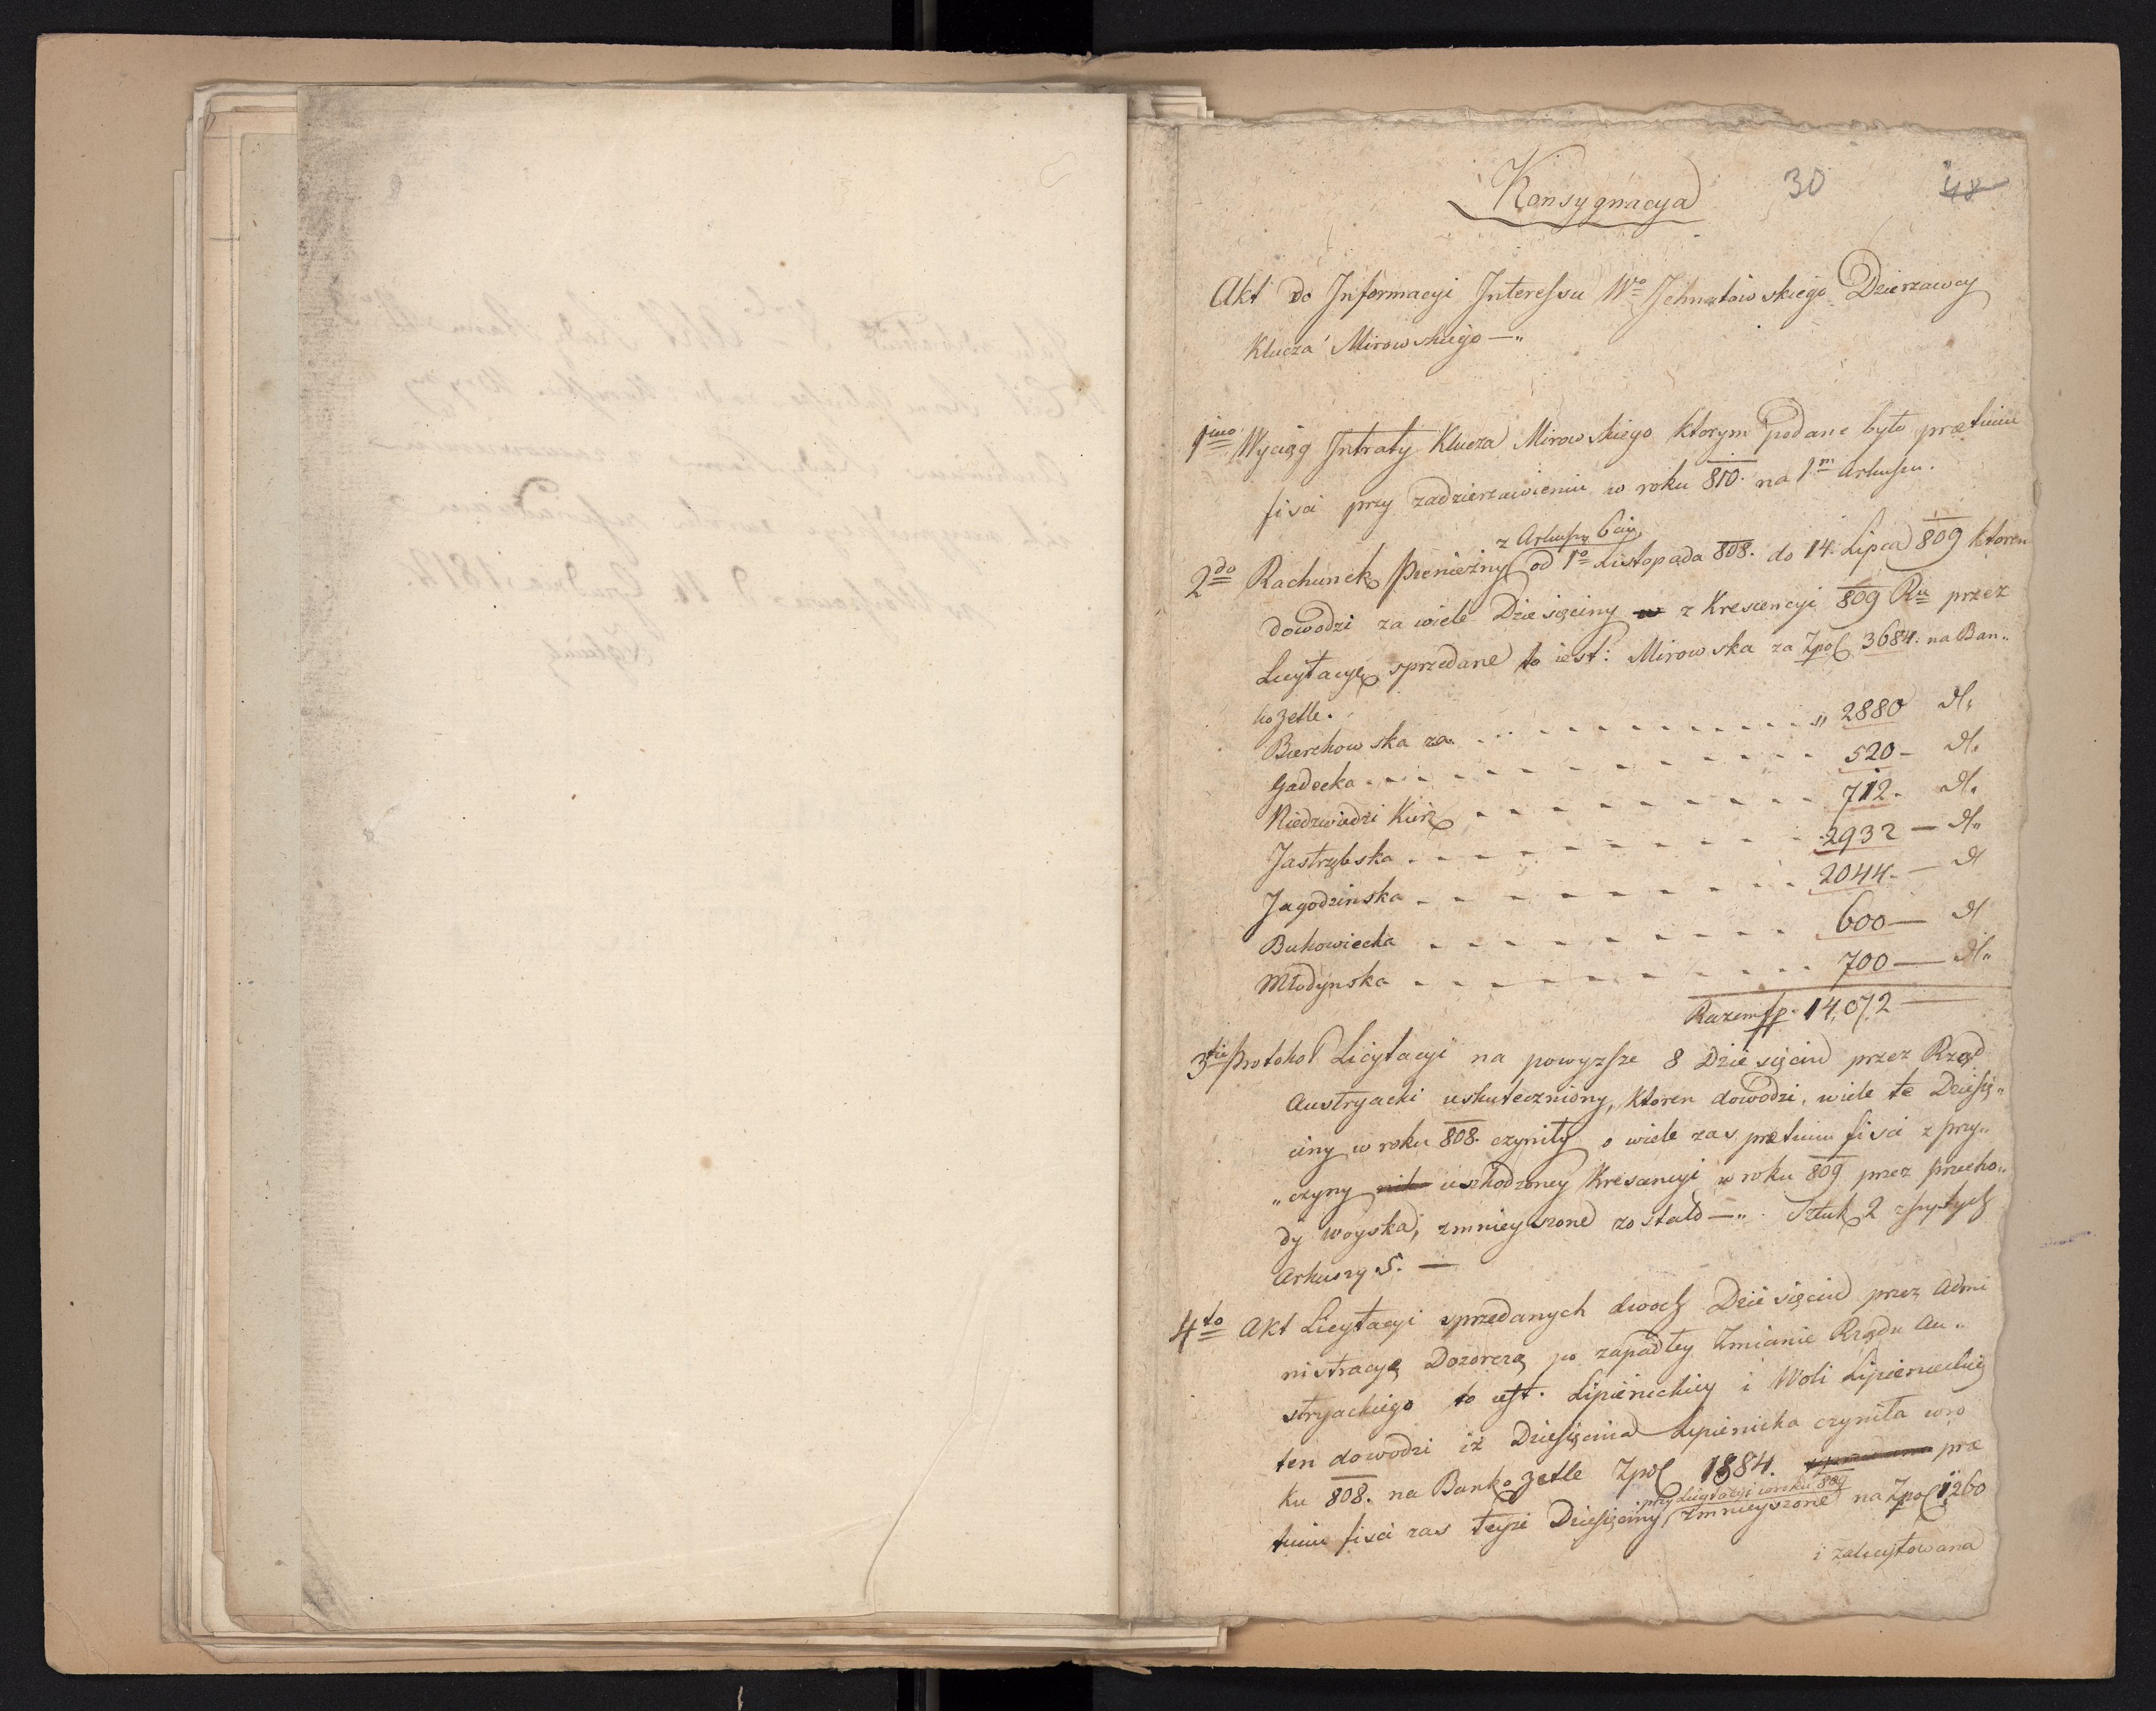 Konsygnacya
30
48
Akt do Informacyi Interessu Wo Dzierzawcy
Klucza Mirowskiego —„
1mo Wyciąg Intraty Klucza Mirowskiego ktorym podane było prætium
fisci przy zadzierzawieniu w roku 810. na 1m Arkuszu.
z Arkuszy 6ciu
2do Rachunek Pieniężny od 1o Listopada 808. do 14. Lipca 809 ktoren
dowodzi za wiele Dziesięciny w z Krescencyi 809 Ru przez
Licytacyę sprzedane to iest: Mirowska za Zpol 3684. na Ban„
kozetle.
Bierchowska za . . . . „ 2880 dl„
Gadecka . . . . 520 — dl.
Niedzwiedzi Kierz . . . . 712. dl.
Jastrzębska . . . . 2932 — dl„
Jagodzinska . . . . 2044. — dl
Bukowiecka . . . . 600 — dl
Młodynska . . . . 700 — dl„
Razem fp. 14,072 —
3tio Protokoł Licytacyi na powyższe 8 Dziesięcin przez Rząd
Austryacki uskuteczniony, ktoren dowodzi, wiele te Dziesię„
ciny w roku 808. czyniły o wiele zas prætium fisci z przy„
„czyny uszkodzoney Krescencyi w roku 809 przez przecho„
dy woyska, zmnieyszone zostało —„ Sztuk 2 zszytych
Arkuszy 5. —
4to Akt Licytacyi sprzedanych dwoch Dziesięcin przez Admi
nistracyę Dozorczą po zapadłey Zmianie Rządu Au„
stryackiego to iest. Lipienickiey i Woli Lipienieckiey
ten dowodzi iż Dziesięcina Lipienicka czyniła w ro
ku 808. na Bankozetle Zpol 1884. præ
przy Licytacyi w roku 809
tium fisci zas teyże Dziesięciny zmnieyszone na Zpol 1260
i zalicytowana